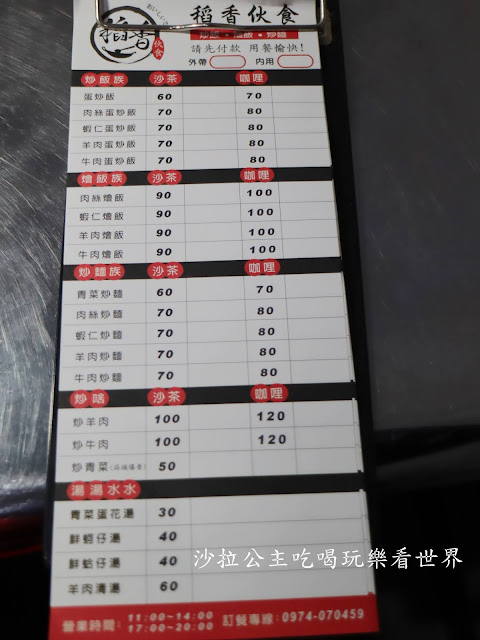 稻香 伙食
稻香伙食
炒飯・燴飯・炒麵
請先付款 用餐愉快!
外帶 內用
炒飯族 沙茶 咖哩
蛋炒飯 60 70
肉絲蛋炒飯 70 80
蝦仁蛋炒飯 70 80
羊肉蛋炒飯 70 80
牛肉蛋炒飯 70 80
燴飯族 沙茶 咖哩
肉絲燴飯 90 100
蝦仁燴飯 90 100
羊肉燴飯 90 100
牛肉燴飯 90 100
炒麵族 沙茶 咖哩
青菜炒麵 60 70
肉絲炒麵 70 80
蝦仁炒麵 70 80
羊肉炒麵 70 80
牛肉炒麵 70 80
炒啥 沙茶 咖哩
炒羊肉 100 120
炒牛肉 100 120
炒青菜 50
湯湯水水
青菜蛋花湯 30
鮮蚵仔湯 40
鮮蛤仔湯 40
羊肉清湯 60
沙拉公主吃喝玩樂看世界
營業時間: 11:00~14:00 訂餐專線: 0974-070459
17:00~20:00